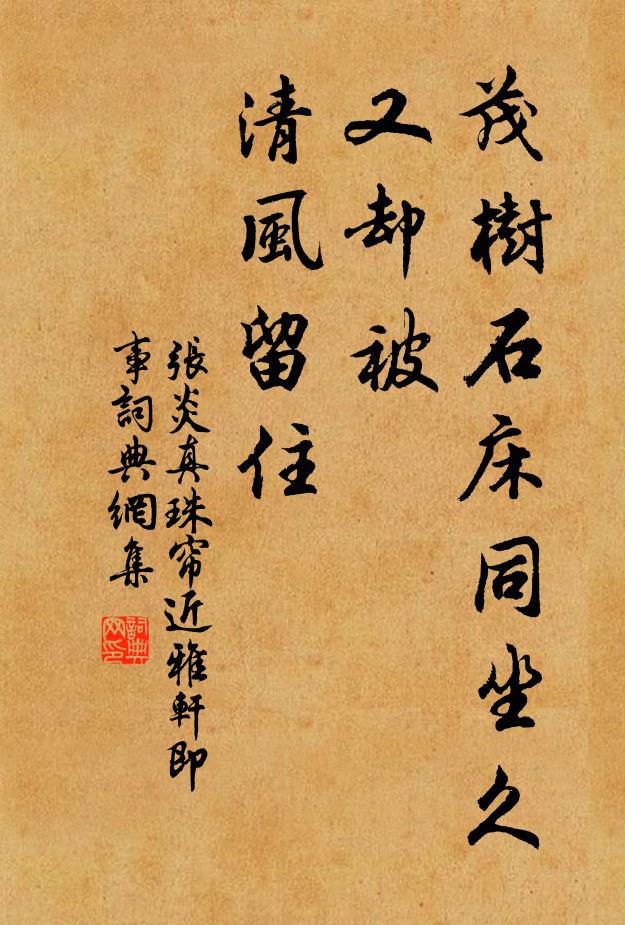 茂樹石床同坐久
又却被
清風留住
張炎真珠帘近雅軒即
事詞典網集
詞典
网印